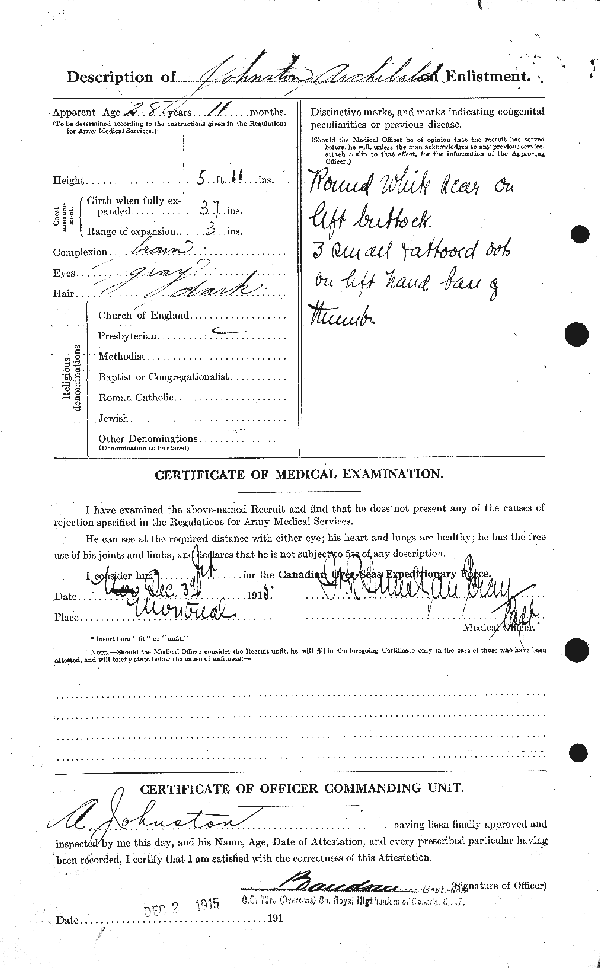 Description of Johnston, Archibald on Enlistment.
Apparent Age 28 years 11 months.
(To be determined according to the instructions given in the Regulations
for Army Medical Services.)
Height 5 ft. 11 ins.
Chest measurement.
Girth when fully expanded 37 ins.
Range of expansion 3 ins.
Complexion brown
Eyes gray
Hair dark
Religious denominations
Church of England
Presbyterian
Methodist
Baptist or Congregationalist
Roman Catholic
Jewish
Other Denominations
(Denomination to be stated)
Distinctive marks, and marks indicating congenital
peculiarities or previous disease.
(Should the Medical Officer be of opinion that the recruit has served
before, he will, unless the man acknowledges to any previous service,
attach a slip to that effect, for the information of the Approving
Officer.)
Round White scar on
left buttock.
3 small tattooed dots
on left hand
thumb
CERTIFICATE OF MEDICAL EXAMINATION.
I have examined the above-named Recruit and find that he does not present any of the causes of
rejection specified in the Regulations for Army Medical Services.
He can see at the required distance with either eye; his heart and lungs are healthy; he has the free
use of his joints and limbs, and declares that he is not subject to fits of any description.
I consider him* fit for the Canadian Over-Seas Expeditionary Force.
Date Dec 191
Place Montreal
Medical Officer.
*Insert here "fit" or "unfit."
NOTE.—Should the Medical Officer consider the Recruit unfit, he will fill in the foregoing Certificate only in the case of those who have been
attested, and will briefly state below the cause of unfitness:—
CERTIFICATE OF OFFICER COMMANDING UNIT.
A. Johnston having been finally approved and
inspected by me this day, and his Name, Age, Date of Attestation, and every prescribed particular having
been recorded, I certify that I am satisfied with the correctness of this Attestation.
(Signature of Officer)
Date DEC 2 1915 191